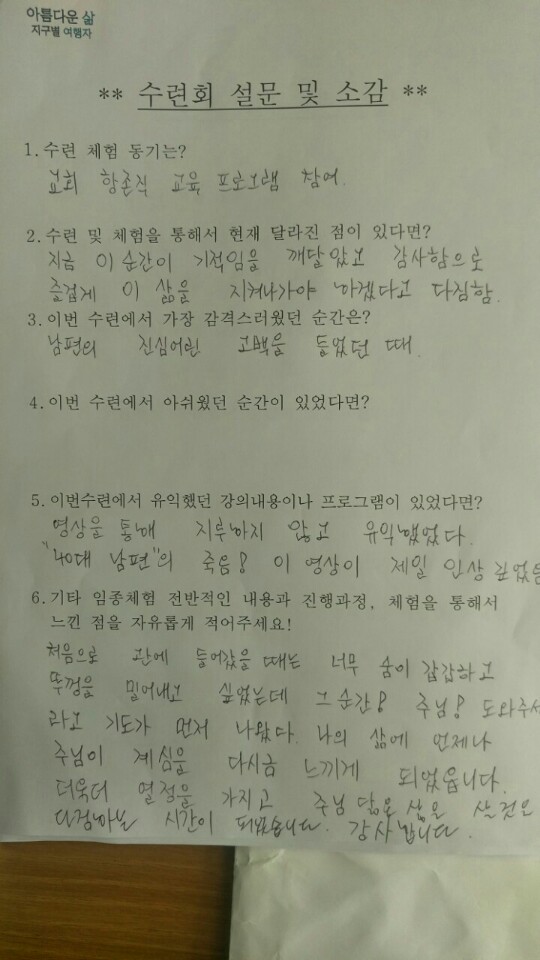 아름다운 삶
지구별 여행자
** 수련회 설문 및 소감 **
1. 수련 체험 동기는?
교회 항존직 교육 프로그램 참여.
2. 수련 및 체험을 통해서 현재 달라진 점이 있다면?
지금 이 순간이 기적임을 깨달았고 감사함으로
즐겁게 이 삶을 지켜나가야 하겠다고 다짐함.
3. 이번 수련에서 가장 감격스러웠던 순간은?
남편의 진심어린 고백을 들었던 때.
4. 이번 수련에서 아쉬웠던 순간이 있었다면?
5. 이번수련에서 유익했던 강의내용이나 프로그램이 있었다면?
영상을 통해 지루하지 않고 유익했었다.
"40대 남편"의 죽음! 이 영상이 제일 인상 깊었음
6. 기타 임종체험 전반적인 내용과 진행과정, 체험을 통해서
느낀 점을 자유롭게 적어주세요!
처음으로 관에 들어갔을 때는 너무 숨이 갑갑하고
뚜껑을 밀어내고 싶었는데 그 순간! 주님! 도와주세
라고 기도가 먼저 나왔다. 나의 삶에 언제나
주님이 계심을 다시금 느끼게 되었읍니다.
더욱더 열정을 가지고 주님 닮은 삶을 살것을
다짐하는 시간이 되었습니다. 감사합니다.